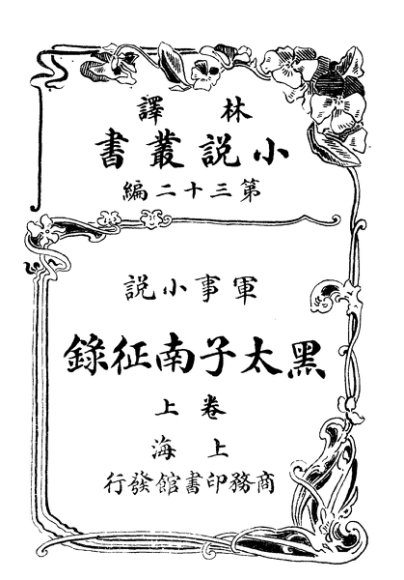 林譯
小説叢書
第三十二編
軍事小説
黑太子南征錄
卷上
上海
商務印書館發行